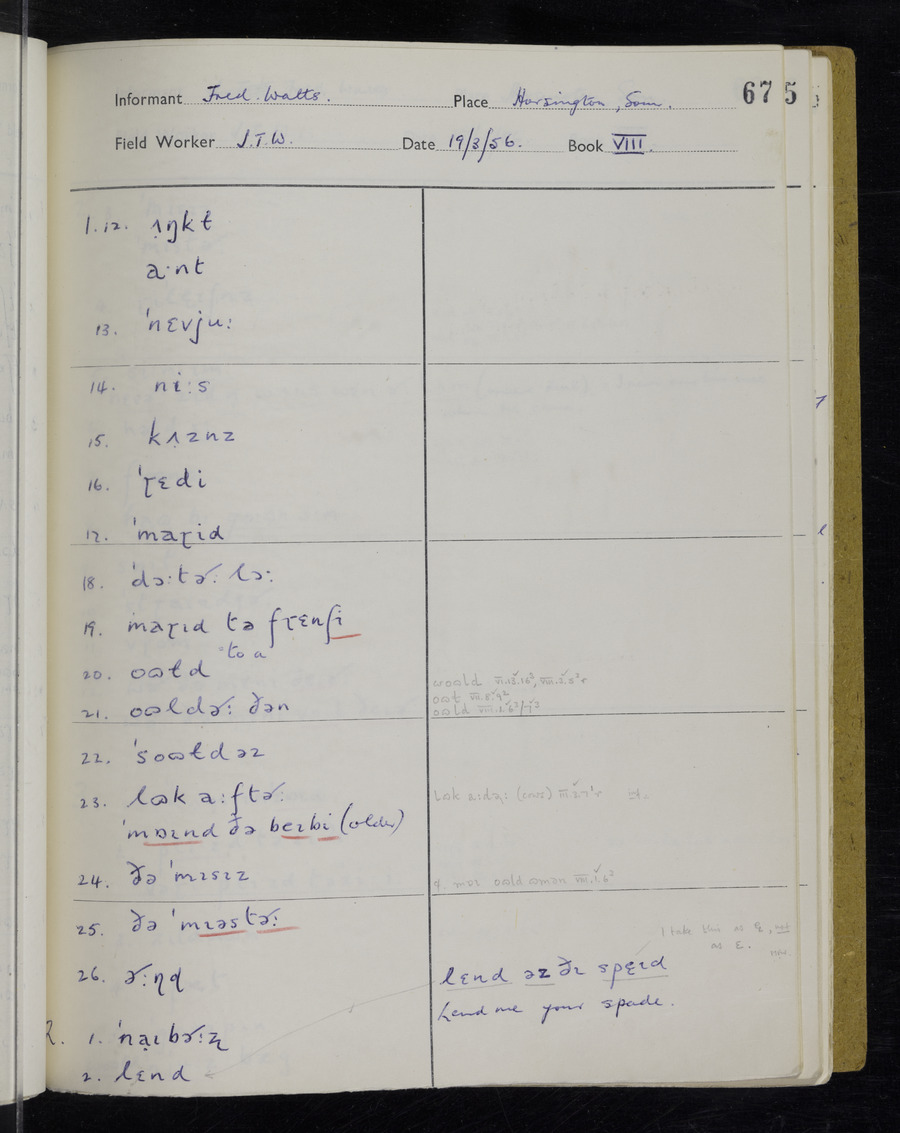 Informant Fred Watts. Place Horsington, Som. 675
Field Worker J.T.W. Date 19/3/56. Book VIII.
1.12. ʌ̣ŋkɫ
a·nt
13. ˈnɛvju:
14. ni:s
15. kʌ̣znz
16. ˈɽɛdi
17. ˈmaɽid
18. ˈdɔ:tə˞: lɔ:
19. maɽɪd tə fɽɛnʃi
to a
20. oɷɫd
21. oɷldə˞: ðən
22. ˈsoɷɫdəz
23. lɷk a:ftə˞:
ˈmɒɪnd ðə beɪbi (older)
24. ðə ˈmɪsɪz
25. ðə ˈmɪəstə˞:
26. ə˞:ɳɖ
2. 1. ˈnaɪbə˞:ʐ
2. lɛnd
woɷld VI.13.16², VIII.3.5²r
oɷt VII.8.9²
oɷld VIII.2.6²/7³
lɷk (cows) III.2.7¹r
oɷld ɷmən VIII.1.6²
I take this as ɛ̣, not
as ɛ.
lɛnd əz ðɪ spẹɪd
Lend me your spade.